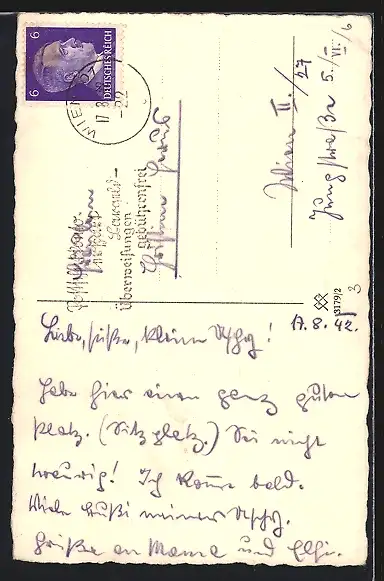 6 6
DEUTSCHES REICH
WIEN
17.8.42
-22
Postscheckkto.
Überweisungen
gebührenfrei
Wien II./27
Jungstraße 5./VI./6
3179/2
3
17.8.42.
Liebe, süße, kleine !
Habe hier einen ganz guten
Platz. (Sitzplatz.) Sei nicht
traurig! Ich komme bald.
Viele Bussi meiner
Grüße an Mama und Elfi.